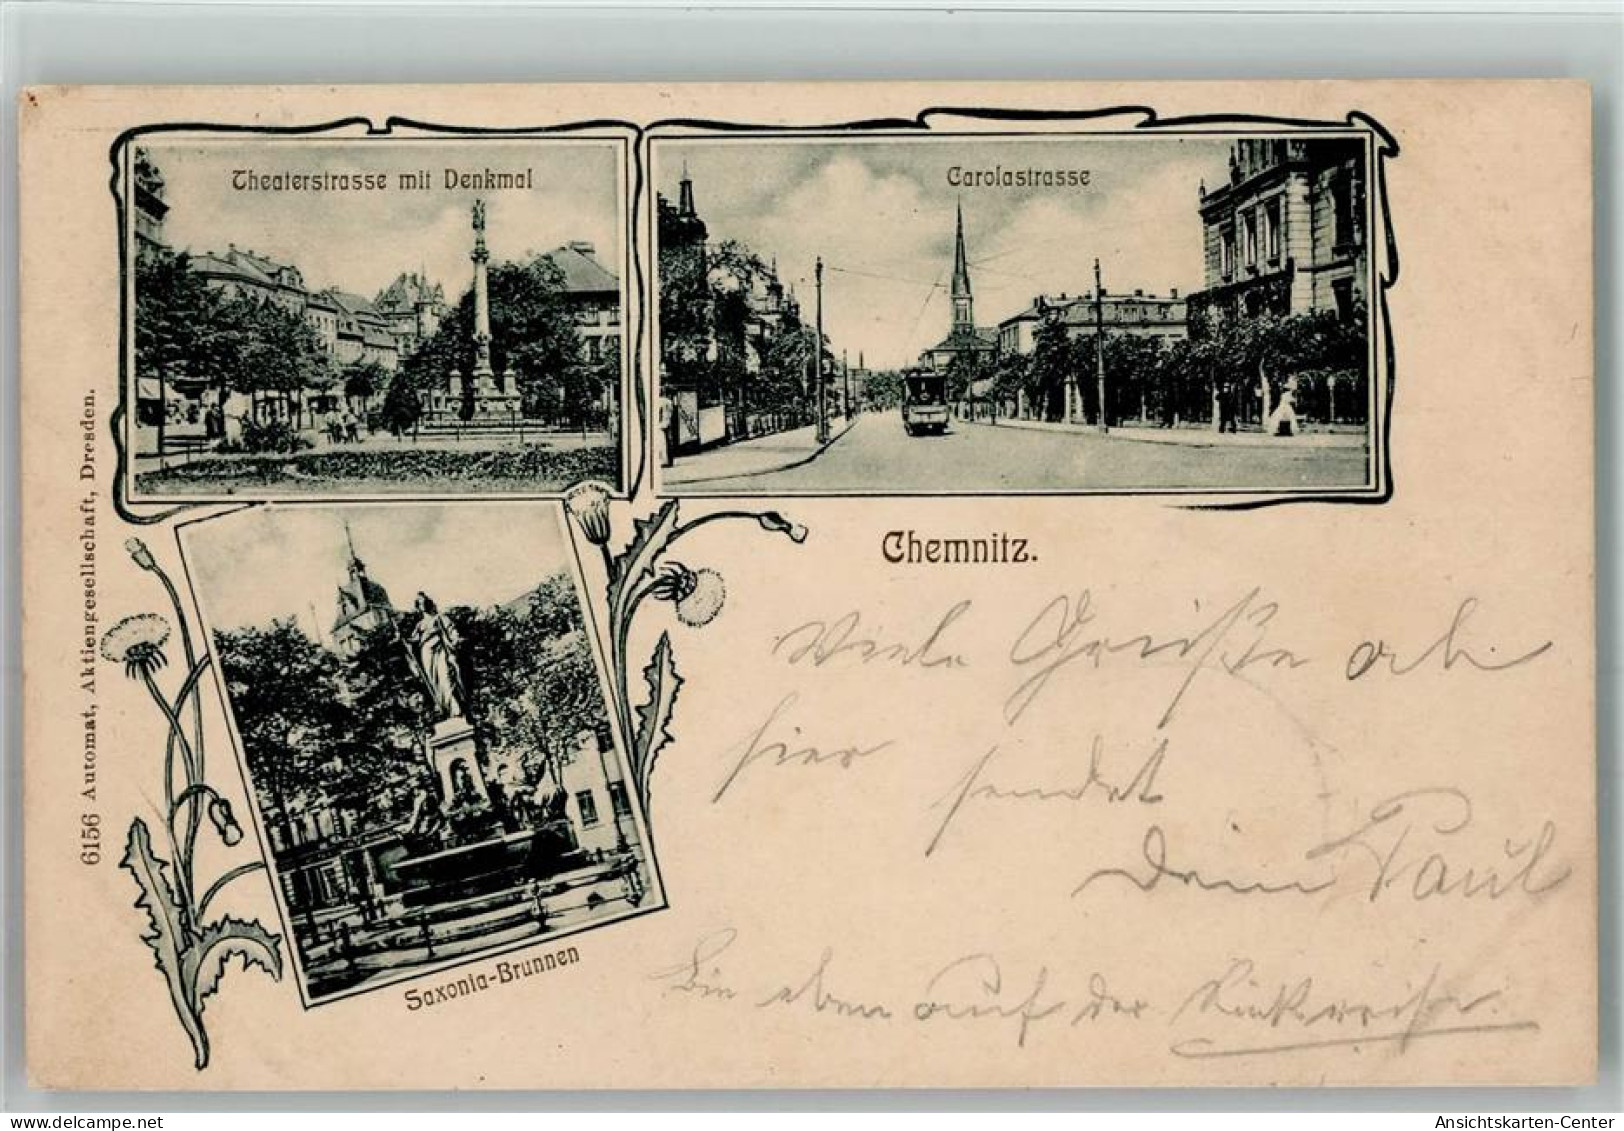 Theaterstrasse mit Denkmal
Carolastrasse
Chemnitz.
Saxonia-Brunnen
6156 Automat, Aktiengesellschaft, Dresden.
Viele Grüße
hier sendet
Dein Paul
Bin eben auf der Rückreise.
Ansichtskarten-Center